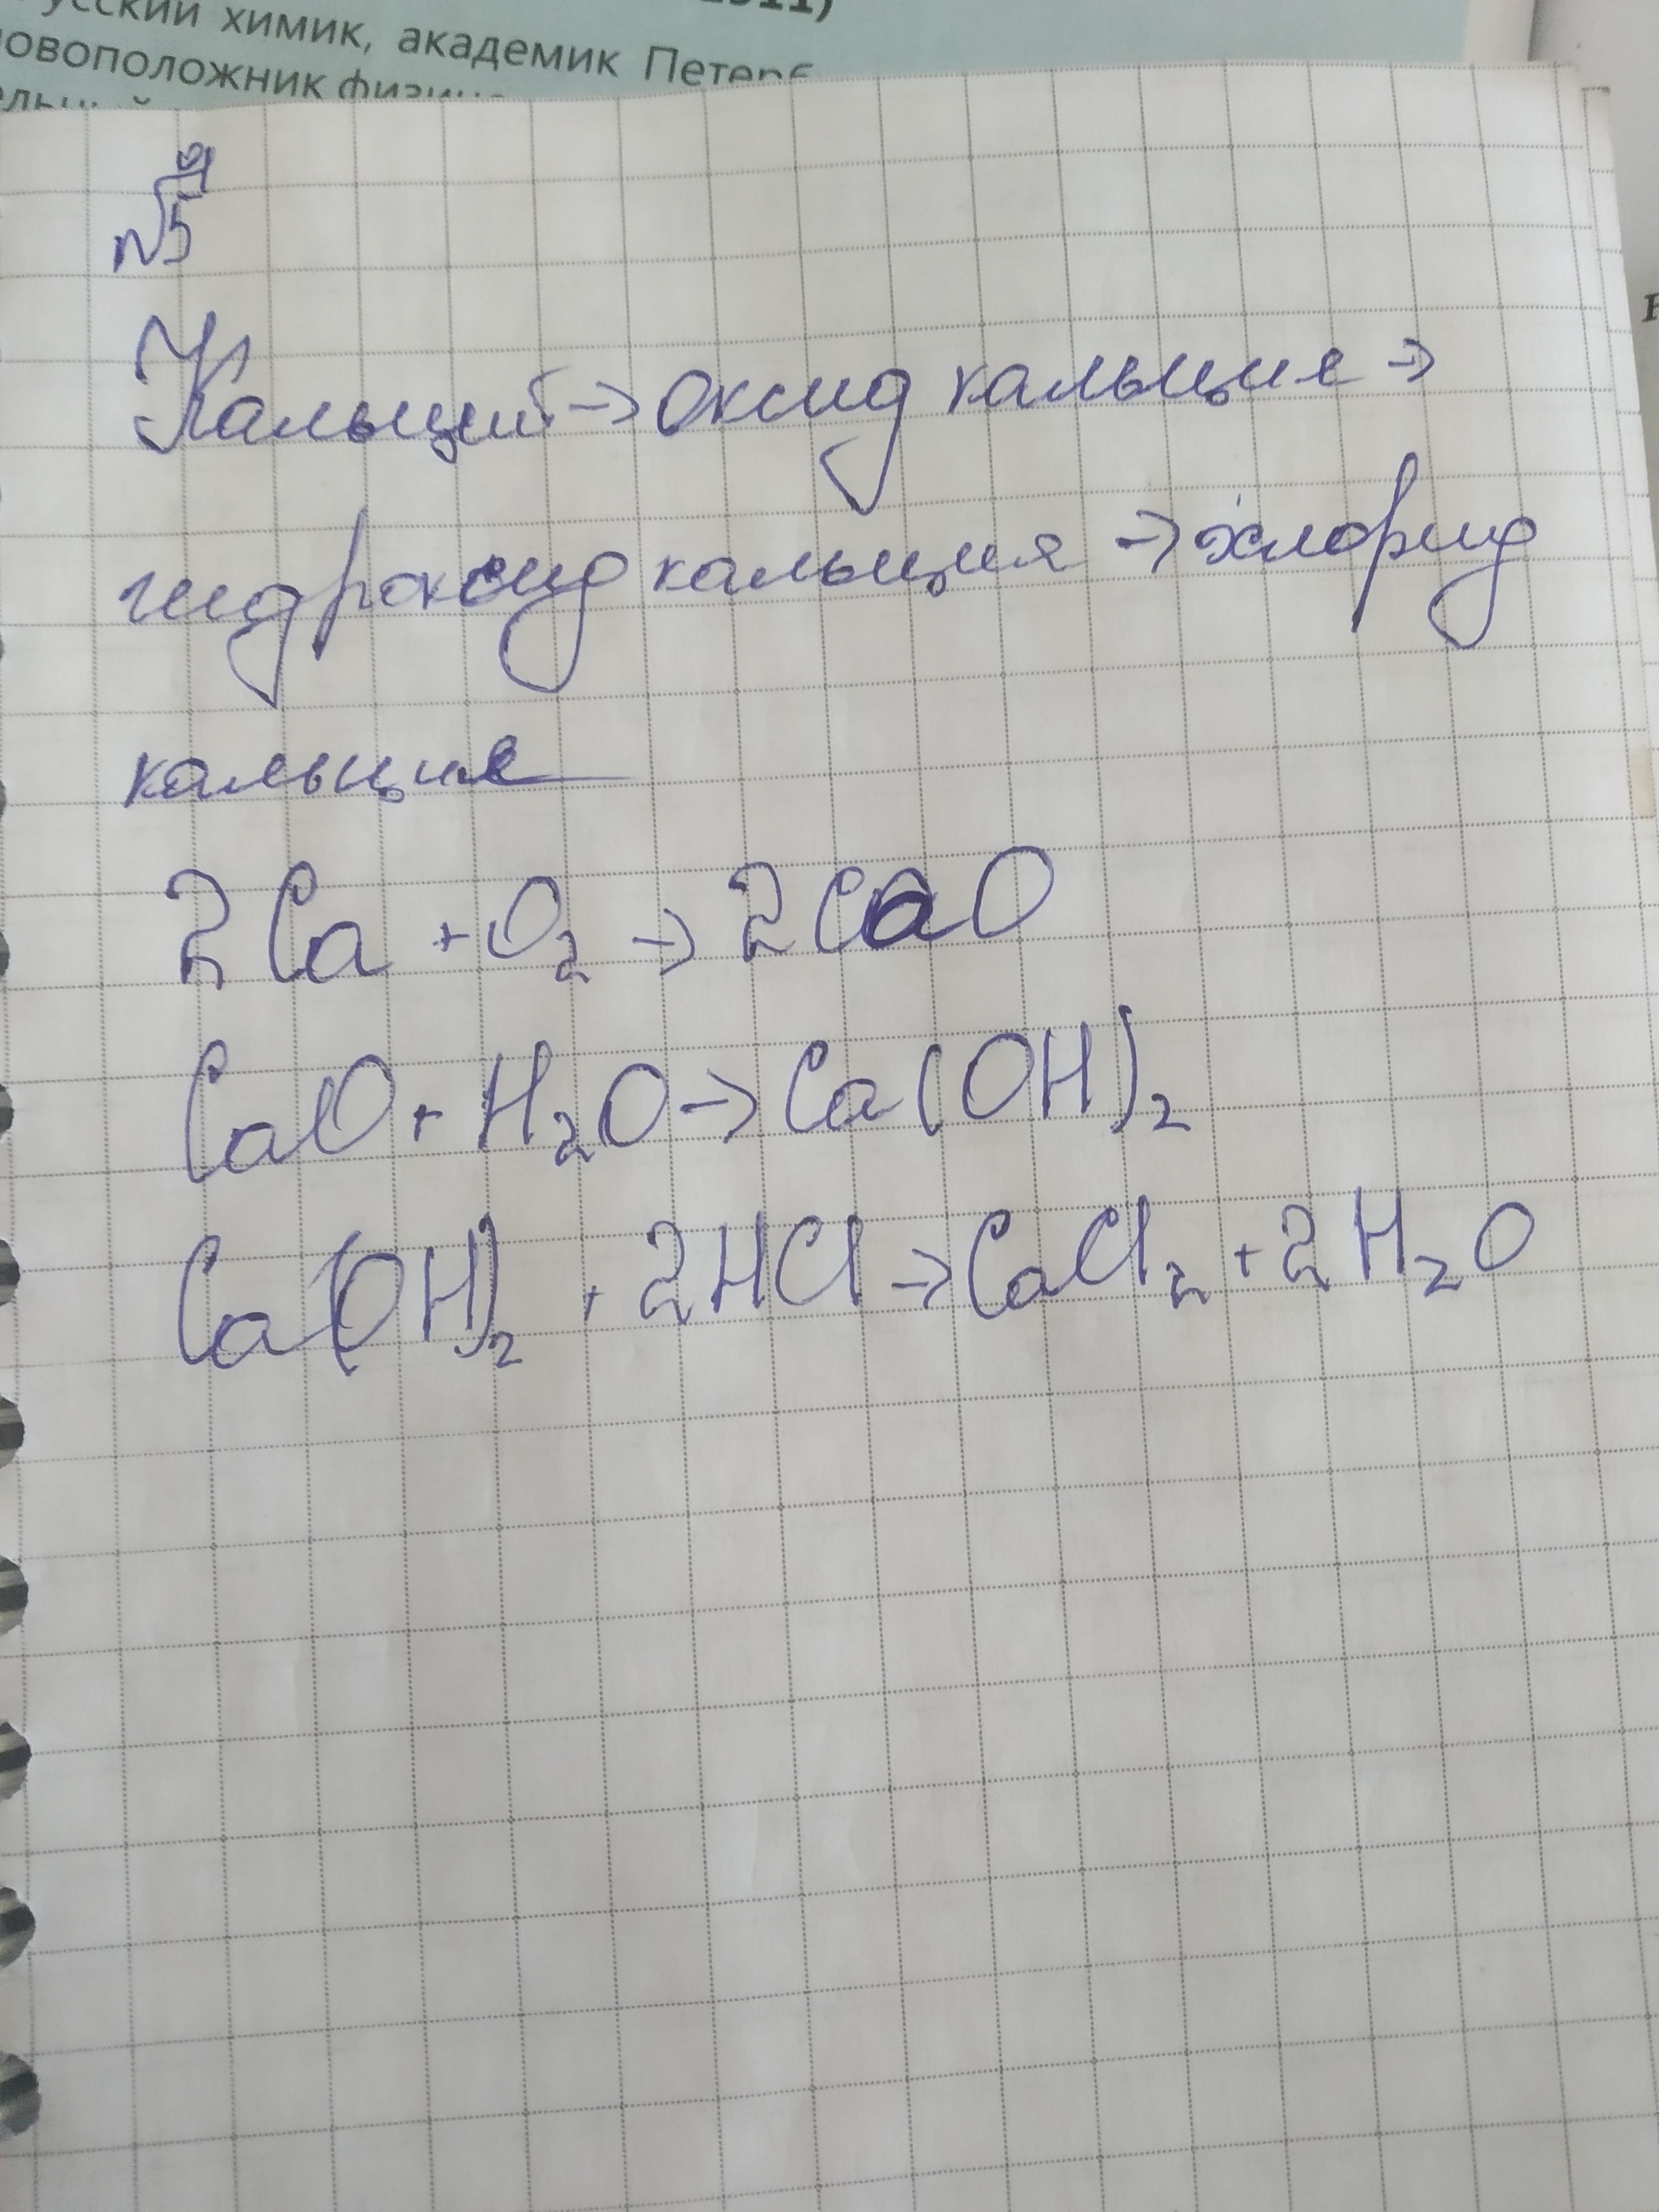 усский химик, академик Петерб
новоположник физиче
№5
Кальций → оксид кальция →
гидроксид кальция → хлорид
кальция
2Ca + O₂ → 2CaO
CaO + H₂O → Ca(OH)₂
Ca(OH)₂ + 2HCl → CaCl₂ + 2H₂O